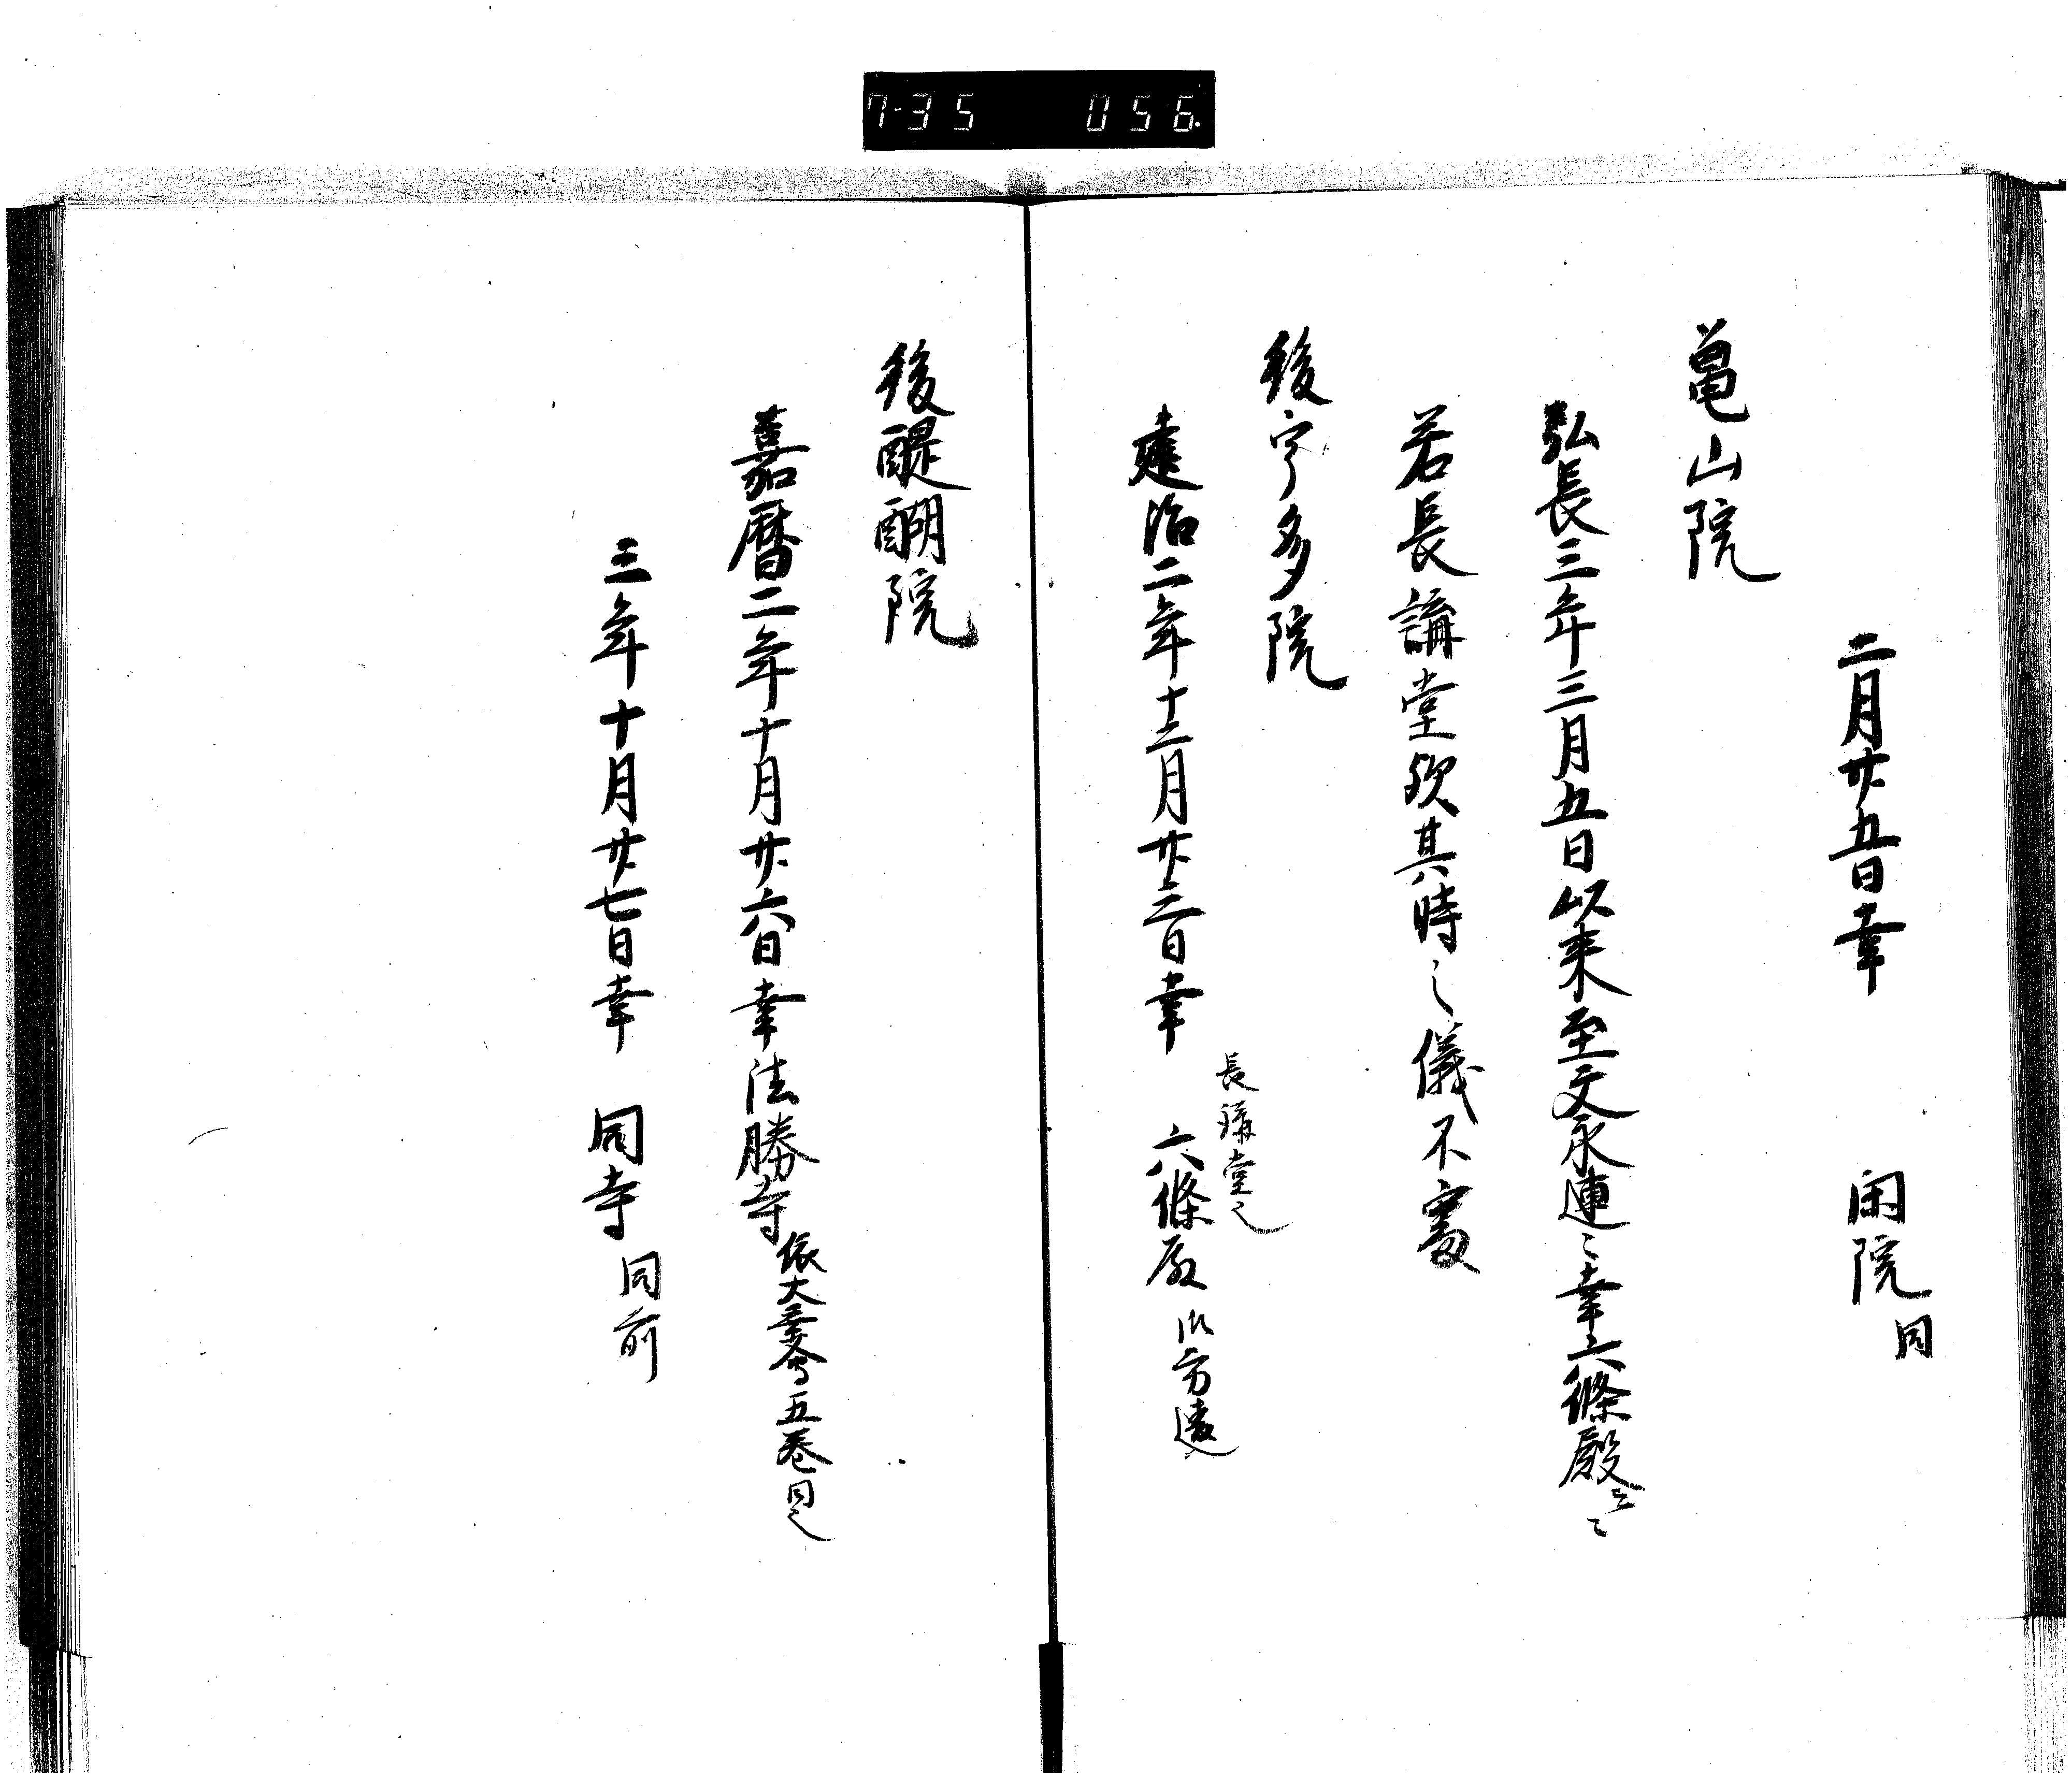 7-35 056.
二月廿五日幸 閑院同
亀山院
弘長三年三月五日以来至文永連〻幸六條殿云〻
若長講堂歟其時之儀不審
後宇多院
建治二年十二月廿三日幸 六條殿 御方違
長講堂也
後醍醐院
嘉暦二年十月廿六日幸法勝寺 依大乗会五巻日也
三年十月廿七日幸 同寺 同前